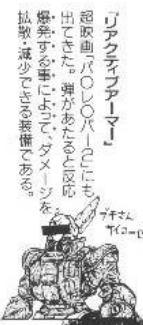 『リアクティブアーマー』
超映画「パ〇レ〇バー2」にも
出てきた。弾があたると反応
爆発する事によって、ダメージを
拡散・減少できる装備である。